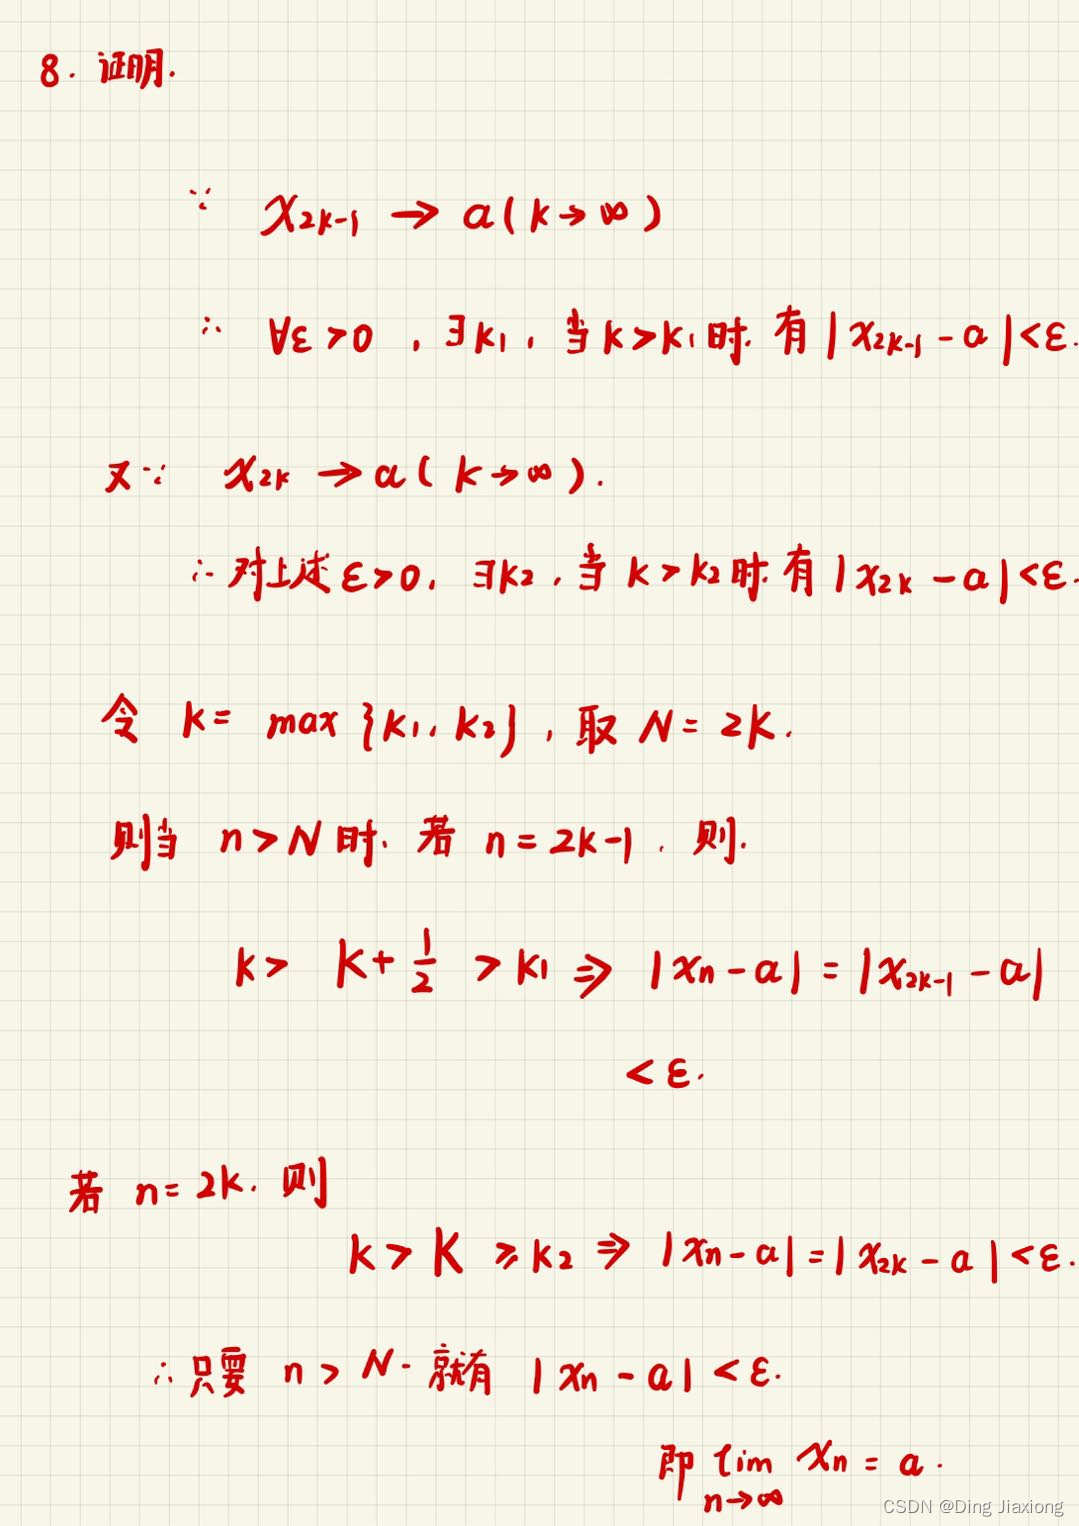 8. 证明.
∵ x₂ₖ₋₁ → a (k→∞)
∴ ∀ε>0, ∃k₁, 当k>k₁时, 有|x₂ₖ₋₁-a|<ε.
又∵ x₂ₖ → a (k→∞).
∴ 对上述ε>0, ∃k₂, 当k>k₂时, 有|x₂ₖ-a|<ε.
令 K = max{k₁, k₂}, 取N=2K.
则当 n>N时, 若 n=2k-1, 则.
k > K+1/2 > k₁ ⇒ |xₙ-a| = |x₂ₖ₋₁-a|
<ε.
若 n=2k, 则
k > K ≥ k₂ ⇒ |xₙ-a| = |x₂ₖ-a|<ε.
∴ 只要 n>N. 就有 |xₙ-a|<ε.
即 lim n→∞ xₙ = a.
CSDN @Ding Jiaxiong